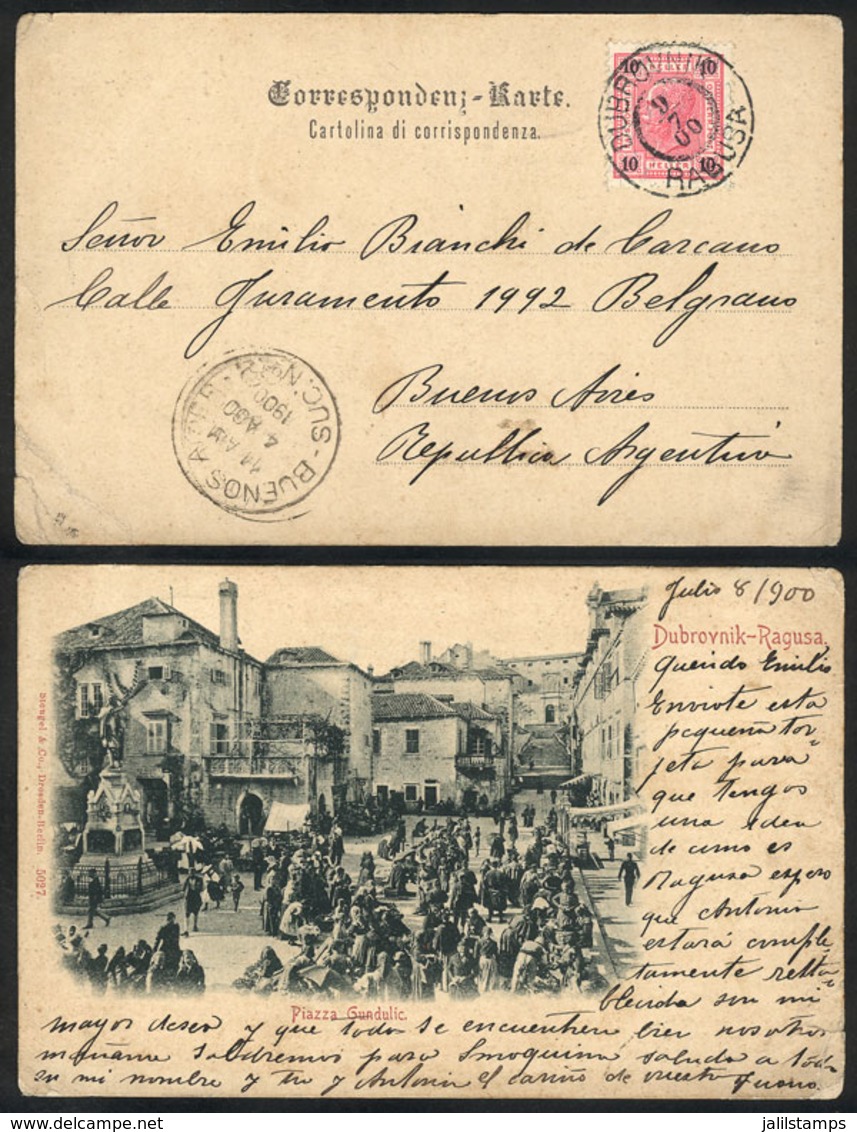 Correspondenz-Karte.
Cartolina di corrispondenza.
10 10
10 HELLER 10
DUBROVNIK
9/7 00
RAGUSA
Señor Emilio Bianchi de Carcano
Calle Juramento 1992 Belgrano
Buenos Aires
Republica Argentina
BUENOS AIRES - SUC. N.
1900
4 AGO
11 AM
Julio 8/900
Dubrovnik-Ragusa.
Querido Emilio
Enviote esta
pequeña tar-
jeta para
que tengas
una idea
de como es
Ragusa espero
que Antonia
estará comple
tamente resta-
blecida son mi
mayor deseo y que todos se encuentren bien nosotros
mañana saldremos para saluda a todos
en mi nombre y tu y Antonia el cariño de vuestro
Piazza Gundulic.
Stengel & Co., Dresden-Berlin. 5027.
jalilstamps